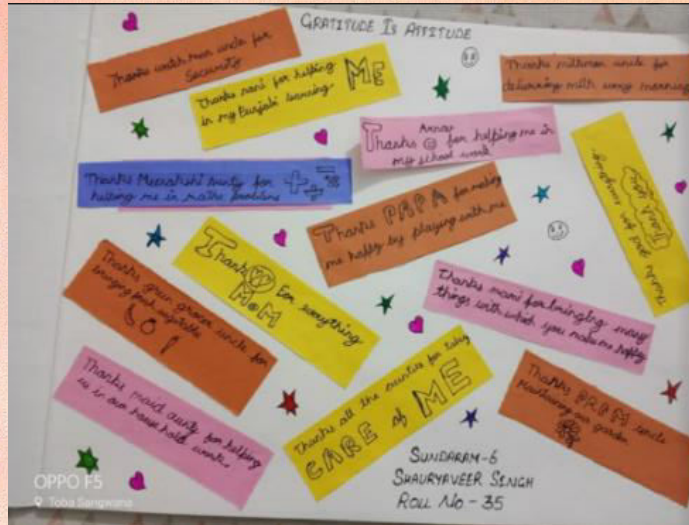 GRATITUDE IS ATTITUDE
Thanks watch man uncle for
Security
Thanks nani for helping ME
in my Punjabi learning.
Thanks milkman uncle for
delivering milk every morning
Arnav
Thanks for helping me in
my school work
Thanks Meenakshi aunty for
helping me in maths problems
Thanks god for everything.
Thank you
Thanks PAPA for making
me happy by playing with me
Thanks For everything
MOM
Thanks green grocer uncle for
bringing fresh vegetable
Thanks mani for bringing many
things with which you make me happy
Thanks maid aunty for helping
us in our house hold work.
Thanks all the aunties for taking
CARE of ME
Thanks PREM uncle
Maintaining our garden
SUNDARAM-6
SHAURYAVEER SINGH
ROLL NO - 35
OPPO F5
Toba Sangwana